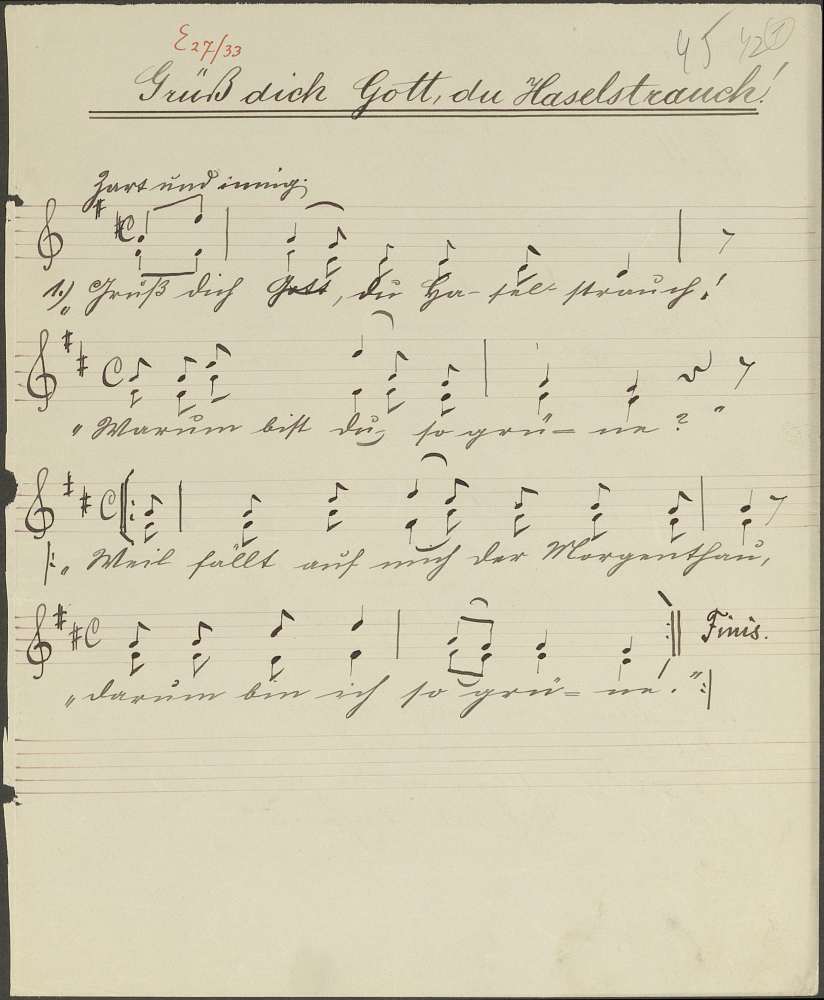 E 27/33
45 42 1
Grüß dich Gott, du Haselstrauch!
Zart und innig.
1.) „Grüß dich Gott, du Ha- sel- strauch!
„Warum bist du so grü= ne?"
|: „Weil fällt auf mich der Morgenthau,
Finis.
„darum bin ich so grü= ne." :|